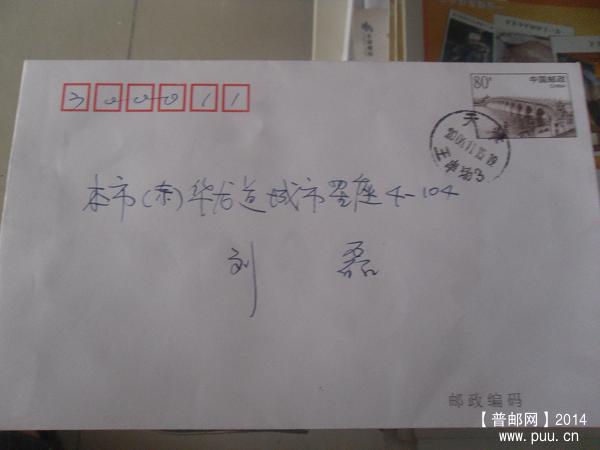 300011
80分 中国邮政
CHINA
天津
2006.11.15.19
本市(东)华龙道城市星座4-104
刘 磊
邮政编码
【普邮网】2014
www.puu.cn